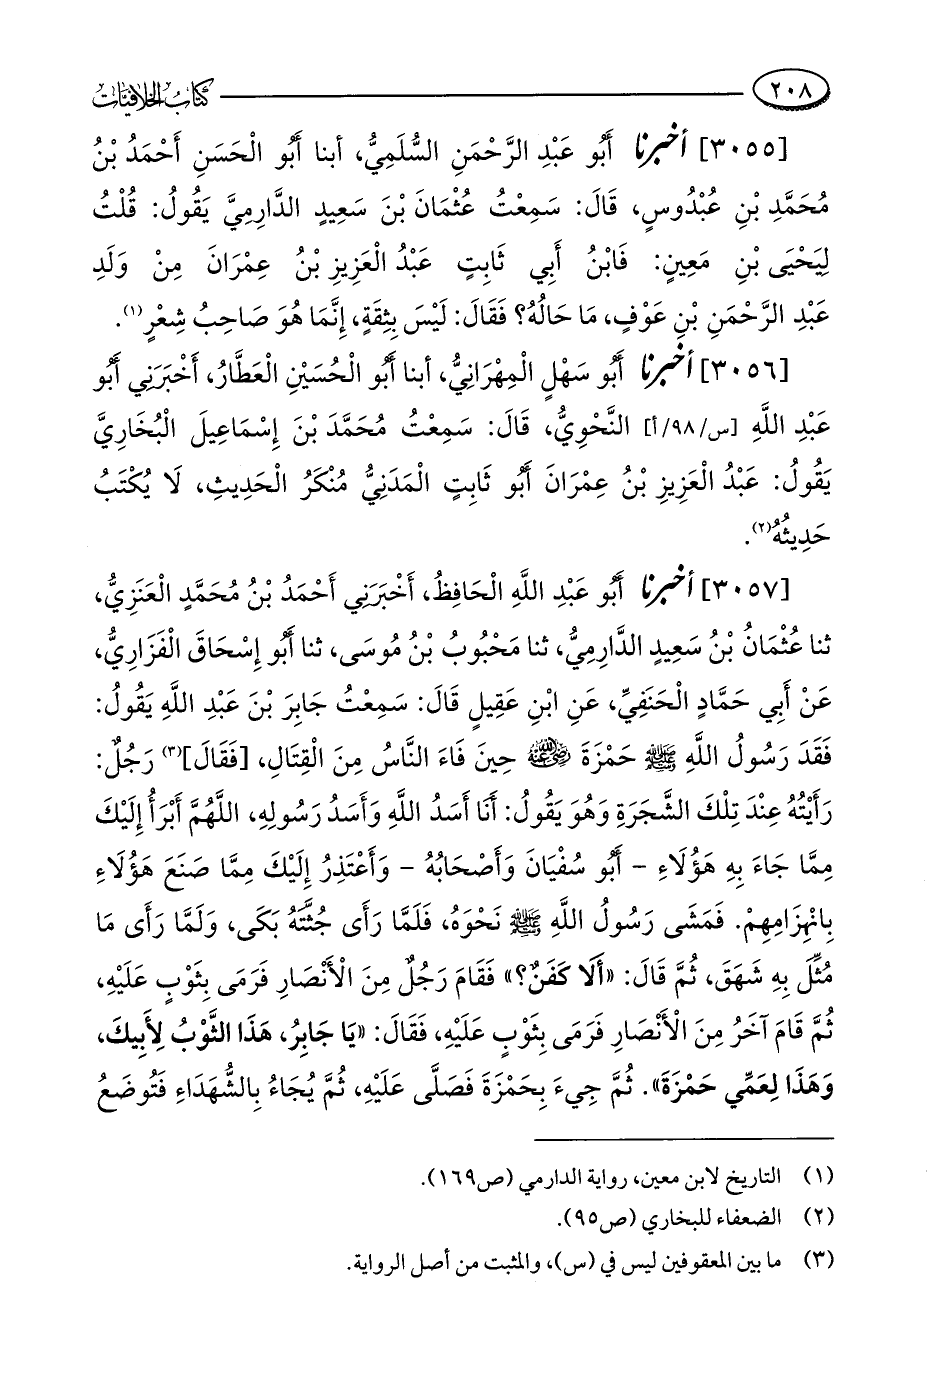 ٢٠٨ كتاب الخلافيات
[٣٠٥٥] أخبرنا أَبُو عَبْدِ الرَّحْمَنِ السُّلَمِيُّ، أبنا أَبُو الْحَسَنِ أَحْمَدُ بْنُ
مُحَمَّدِ بْنِ عُبْدُوسٍ، قَالَ: سَمِعْتُ عُثْمَانَ بْنَ سَعِيدٍ الدَّارِمِيَّ يَقُولُ: قُلْتُ
لِيَحْيَى بْنِ مَعِينٍ: فَابْنُ أَبِي ثَابِتٍ عَبْدُ الْعَزِيزِ بْنُ عِمْرَانَ مِنْ وَلَدِ
عَبْدِ الرَّحْمَنِ بْنِ عَوْفٍ، مَا حَالُهُ؟ فَقَالَ: لَيْسَ بِثِقَةٍ، إِنَّمَا هُوَ صَاحِبُ شِعْرٍ(١).
[٣٠٥٦] أخبرنا أَبُو سَهْلٍ الْمِهْرَانِيُّ، أبنا أَبُو الْحُسَيْنِ الْعَطَّارُ، أَخْبَرَنِي أَبُو
عَبْدِ اللَّهِ [س/٩٨/أ] النَّحْوِيُّ، قَالَ: سَمِعْتُ مُحَمَّدَ بْنَ إِسْمَاعِيلَ الْبُخَارِيَّ
يَقُولُ: عَبْدُ الْعَزِيزِ بْنُ عِمْرَانَ أَبُو ثَابِتٍ الْمَدَنِيُّ مُنْكَرُ الْحَدِيثِ، لَا يُكْتَبُ
حَدِيثُهُ(٢).
[٣٠٥٧] أخبرنا أَبُو عَبْدِ اللَّهِ الْحَافِظُ، أَخْبَرَنِي أَحْمَدُ بْنُ مُحَمَّدٍ الْعَنَزِيُّ،
ثنا عُثْمَانُ بْنُ سَعِيدٍ الدَّارِمِيُّ، ثنا مَحْبُوبُ بْنُ مُوسَى، ثنا أَبُو إِسْحَاقَ الْفَزَارِيُّ،
عَنْ أَبِي حَمَّادٍ الْحَنَفِيِّ، عَنِ ابْنِ عَقِيلٍ قَالَ: سَمِعْتُ جَابِرَ بْنَ عَبْدِ اللَّهِ يَقُولُ:
فَقَدَ رَسُولُ اللَّهِ ﷺ حَمْزَةَ رضي الله عنه حِينَ فَاءَ النَّاسُ مِنَ الْقِتَالِ، [فَقَالَ](٣) رَجُلٌ:
رَأَيْتُهُ عِنْدَ تِلْكَ الشَّجَرَةِ وَهُوَ يَقُولُ: أَنَا أَسَدُ اللَّهِ وَأَسَدُ رَسُولِهِ، اللَّهُمَّ أَبْرَأُ إِلَيْكَ
مِمَّا جَاءَ بِهِ هَؤُلَاءِ - أَبُو سُفْيَانَ وَأَصْحَابُهُ - وَأَعْتَذِرُ إِلَيْكَ مِمَّا صَنَعَ هَؤُلَاءِ
بِانْهِزَامِهِمْ. فَمَشَى رَسُولُ اللَّهِ ﷺ نَحْوَهُ، فَلَمَّا رَأَى جُثَّتَهُ بَكَى، وَلَمَّا رَأَى مَا
مُثِّلَ بِهِ شَهَقَ، ثُمَّ قَالَ: «أَلَا كَفَنٌ؟» فَقَامَ رَجُلٌ مِنَ الْأَنْصَارِ فَرَمَى بِثَوْبٍ عَلَيْهِ،
ثُمَّ قَامَ آخَرُ مِنَ الْأَنْصَارِ فَرَمَى بِثَوْبٍ عَلَيْهِ، فَقَالَ: «يَا جَابِرُ، هَذَا الثَّوْبُ لِأَبِيكَ،
وَهَذَا لِعَمِّي حَمْزَةَ». ثُمَّ جِيءَ بِحَمْزَةَ فَصَلَّى عَلَيْهِ، ثُمَّ يُجَاءُ بِالشُّهَدَاءِ فَتُوضَعُ
(١) التاريخ لابن معين، رواية الدارمي (ص١٦٩).
(٢) الضعفاء للبخاري (ص٩٥).
(٣) ما بين المعقوفين ليس في (س)، والمثبت من أصل الرواية.